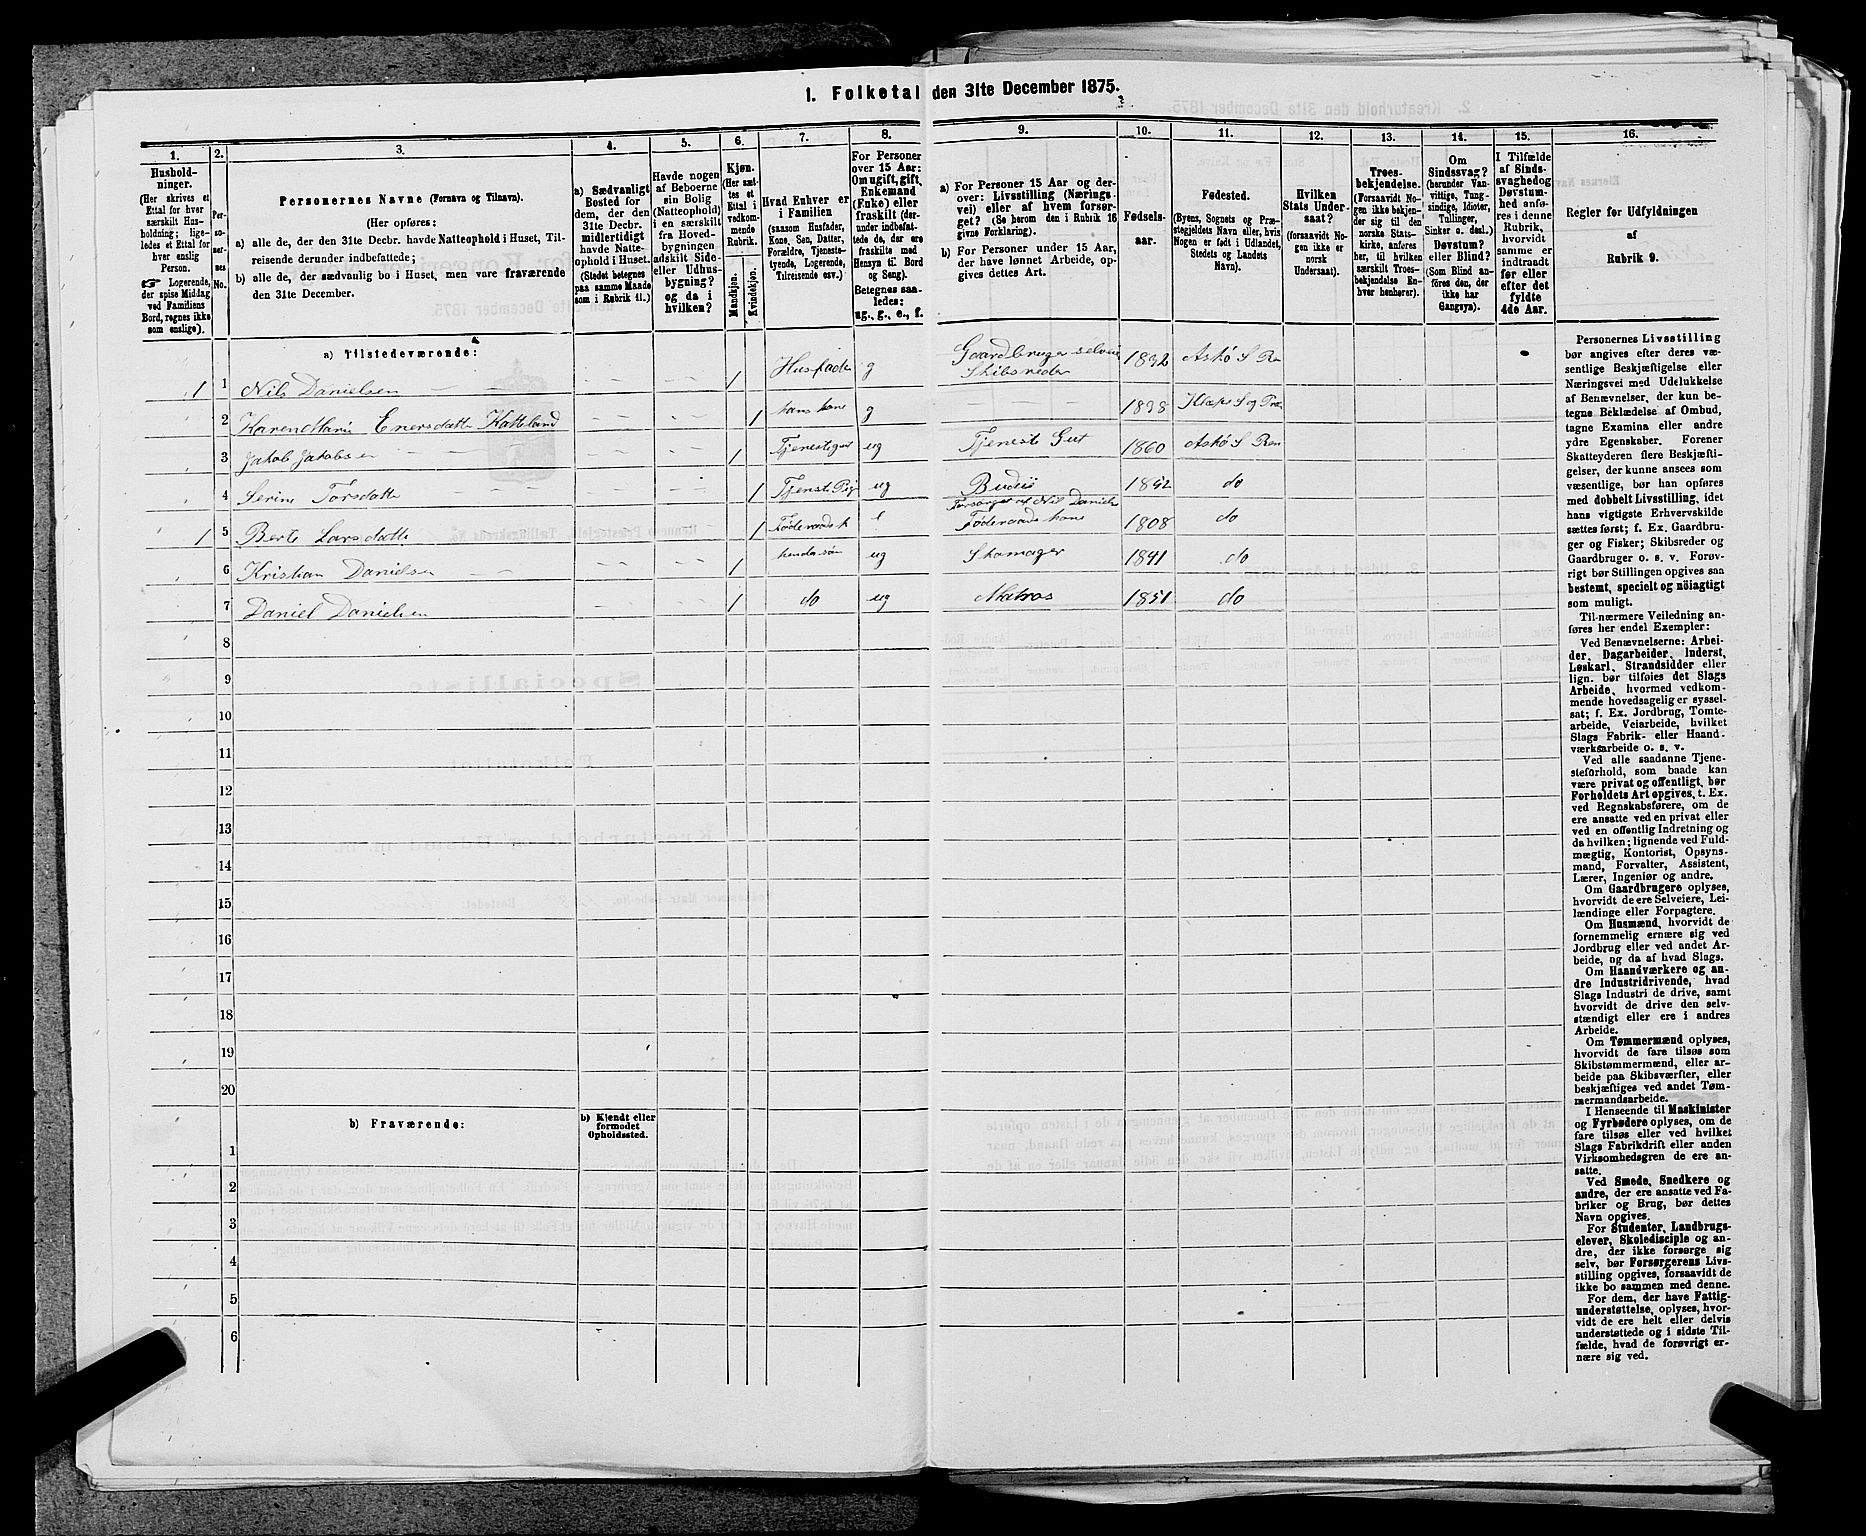 1. Folketal den 31te December 1875.
1.
Hushold-
ninger.
(Her skrives et
Ettal for hver
særskilt Hus-
holdning; lige-
ledes et Ettal for
hver enslig
Person.
☞ Logerende,
der spise Middag
ved Familiens
Bord, regnes ikke
som enslige).
2.
Per-
so-
ner-
nes
No.
3.
Personernes Navne (Fornavn og Tilnavn).
(Her opføres:
a) alle de, der den 31te Decbr. havde Natteophold i Huset, Til-
reisende derunder indbefattede;
b) alle de, der sædvanlig bo i Huset, men vare fraværende
den 31te December.
4.
a) Sædvanligt
Bosted for
dem, der den
31te Decbr.
midlertidigt
havde Natte-
ophold i Huset.
(Stedet betegnes
paa samme Maade
som i Rubrik 11.)
5.
Havde nogen
af Beboerne
sin Bolig
(Natteophold)
i en særskilt
fra Hoved-
bygningen
adskilt Side-
eller Udhus-
bygning?
og da i
hvilken?
6.
Kjøn.
(Her sæt-
tes et
Ettal i
vedkom-
mende
Rubrik.
Mandkjøn.
Kvindekjøn.
7.
Hvad Enhver er
i Familien
(saasom Husfader,
Kone, Søn, Datter,
Forældre, Tjeneste-
tyende, Logerende,
Tilreisende osv.)
8.
For Personer
over 15 Aar:
Om ugift, gift,
Enkemand
(Enke) eller
fraskilt (der-
under indbefat-
tede de, der ere
fraskilte med
Hensyn til Bord
og Seng).
Betegnes saa-
ledes:
ug., g., e., f.
9.
a) For Personer 15 Aar og der-
over: Livsstilling (Nærings-
vei) eller af hvem forsør-
get? (Se herom den i Rubrik 16
givne Forklaring).
b) For Personer under 15 Aar,
der have lønnet Arbeide, op-
gives dettes Art.
10.
Fødsels-
aar.
11.
Fødested.
(Byens, Sognets og Præ-
stegjeldets Navn eller, hvis
Nogen er født i Udlandet,
Stedets og Landets
Navn).
12.
Hvilken
Stats Under-
saat?
(forsaavidt No-
gen ikke er
norsk
Undersaat).
13.
Troes-
bekjendelse.
(Forsaavidt No-
gen ikke bekjen-
der sig til den
norske Stats-
kirke, anføres
her, til hvilken
særskilt Troes-
bekjendelse En-
hver henhører).
14.
Om
Sindssvag?
(herunder Van-
vittige, Tung-
sindige, Idioter,
Tullinger,
Sinker o. desl.)
Døvstum?
eller Blind?
(Som Blind an-
føres den, der
ikke har
Gangsyn).
15.
I Tilfælde
af Sinds-
svaghed og
Døvstum-
hed anfø-
res i denne
Rubrik,
hvorvidt
samme er
indtraadt
før eller
efter det
fyldte
4de Aar.
16.
Regler for Udfyldningen
af
Rubrik 9.
a) Tilstedeværende:
1 1 Nils Danielsen — — — — 1 Husfader g Gaardbruger selveier Skibsreder 1832 Askø S Ren
2 Karen Marie Enersdatter Katteland — — — — 1 hans kone g — — 1838 S og Præ
3 Jakob Jakobsen — — — — 1 Tjenestegut ug Tjeneste Gut 1860 Askø S Ren
4 Serine Torsdatte — — — — 1 Tjenste Pig ug Budeie 1852 do
1 5 Berte Larsdatte — — 1 Föderaads k e Forsørget af Nil Daniels Föderaads kone 1808 do
6 Kristian Danielsen — — — — 1 hendes sön ug Skomager 1841 do
7 Daniel Danielsen — — — — 1 do ug Matros 1851 do
8
9
10
11
12
13
14
15
16
17
18
19
20
b) Fraværende:
b) Kjendt eller
formodet
Opholdssted.
1
2
3
4
5
6
Personernes Livsstilling
bør angives efter deres væ-
sentlige Beskjæftigelse eller
Næringsvei med Udelukkelse
af Benævnelser, der kun be-
tegne Beklædelse af Ombud,
tagne Examina eller andre
ydre Egenskaber. Forener
Skatteyderen flere Beskjæfti-
gelser, der kunne ansees som
væsentlige, bør han opføres
med dobbelt Livsstilling, idet
hans vigtigste Erhvervskilde
sættes først; f. Ex. Gaardbru-
ger og Fisker; Skibsreder og
Gaardbruger o. s. v. Forøv-
rigt bør Stillingen opgives saa
bestemt, specielt og nöiagtigt
som muligt.
Til nærmere Veiledning an-
føres her endel Exempler:
Ved Benævnelserne: Arbei-
der, Dagarbeider, Inderst,
Løskarl, Strandsidder eller
lign. bør tilføies det Slags
Arbeide, hvormed vedkom-
mende hovedsagelig er syssel-
sat; f. Ex. Jordbrug, Tomte-
arbeide, Veiarbeide, hvilket
Slags Fabrik- eller Haand-
værksarbeide o. s. v.
Ved alle saadanne Tjene-
steforhold, som baade kan
være privat og offentligt, bør
Forholdets Art opgives, t. Ex.
ved Regnskabsførere, om de
ere ansatte ved en privat eller
ved en offentlig Indretning og
da hvilken; lignende ved Fuld-
mægtig, Kontorist, Opsyns-
mand, Forvalter, Assistent,
Lærer, Ingeniør og andre.
Om Gaardbrugere oplyses,
hvorvidt de ere Selveiere, Lei-
lændinge eller Forpagtere.
Om Husmænd, hvorvidt de
fornemmelig ernære sig ved
Jordbrug eller ved andet Ar-
beide, og da af hvad Slags.
Om Haandværkere og an-
dre Industridrivende, hvad
Slags Industri de drive, samt
hvorvidt de drive den selv-
stændigt eller ere i andres
Arbeide.
Om Tømmermænd oplyses,
hvorvidt de fare tilsøs som
Skibstømmermænd, eller ar-
beide paa Skibsværfter, eller
beskjæftiges ved andet Tøm-
mermandsarbeide.
I Henseende til Maskinister
og Fyrbødere oplyses, om de
fare tilsøs eller ved hvilket
Slags Fabrikdrift eller anden
Virksomhedsgren de ere an-
satte.
Ved Smede, Snedkere og
andre, der ere ansatte ved Fa-
briker og Brug, bør dettes
Navn opgives.
For Studenter, Landbrugs-
elever, Skoledisciple og an-
dre, der ikke forsørge sig
selv, bør Forsørgerens Livs-
stilling opgives, forsaavidt de
ikke bo sammen med denne.
For dem, der have Fattig-
understøttelse, oplyses, hvor-
vidt de ere helt eller delvis
understøttede og i sidste Til-
fælde, hvad de forøvrigt er-
nære sig ved.